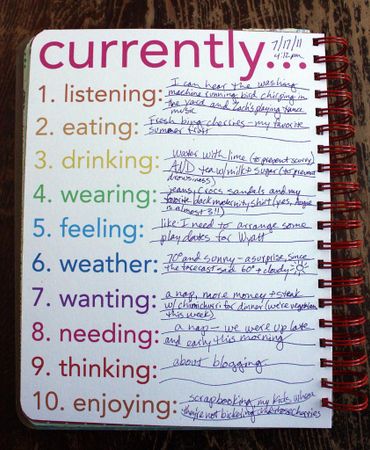 currently...
7/17/11
4:12pm
I can hear the washing
1. listening: machine running, bird chirping in
the yard and Zach's playing trance
music
2. eating: Fresh bing cherries - my favorite
summer fruit
3. drinking: water with lime (to prevent scurvy)
AND tea w/milk + sugar (to prevent
drowsiness)
4. wearing: jeans, crocs sandals and my
favorite black maternity shirt (yes,
is almost 3!!)
5. feeling: like I need to arrange some
play dates for Wyatt
6. weather: 70° and sunny - a surprise, since
the forecast said 60° + cloudy
7. wanting: a nap, more money + steak
w/ chimichurri for dinner (we're
this week)
8. needing: a nap - we were up late
and early this morning
9. thinking: about blogging
10. enjoying: scrapbooking, my kids, when
they're not bickering those cherries